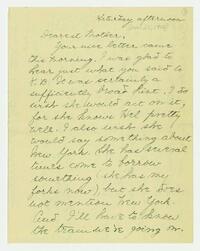 Saturday afternoon
Dearest Mother,
Your nice letter came
this morning. I was glad to
hear just what you said to
K.B. It was certainly a
sufficiently broad hint, I do
wish she would act on it,
for she knows Hel pretty
well. I also wish she
would say something about
New York. She has several
times come to borrow
something (she has my
forks now), but she does
not mention New York.
And I'll have to know
the train we're going on.